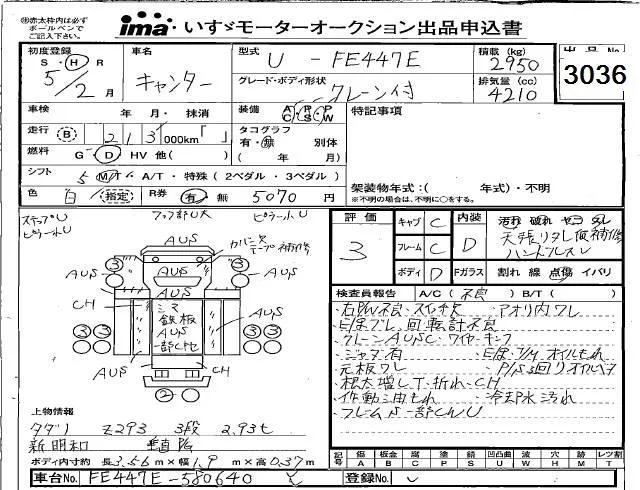 ㊟赤太枠内は必ず
ボールペンで
ご記入下さい。
ima いすゞモーターオークション出品申込書
初度登録 S・H・R 5/2月
車名 キャンター
型式 U-FE447E
積載(kg) 2950
出品No. 3036
グレード・ボディ形状 クレーン付
排気量(cc) 4210
車検 年 月・抹消
装備 AC PS PW
特記事項
走行 B 213,000km「 」
タコグラフ 有・無 別体
( 年 月)
燃料 G D HV 他( )
シフト 5 M/T A/T・特殊(2ペダル・3ペダル)
架装物年式:( 年式)・不明
※不明の場合は、不明に○をする。
色 白 指定 R券 有・無 5070円
ステップU
ピラー小U
フック部U大
ピラー小U
評価 3
キャブ C
フレーム C
ボディ D
内装 D
Fガラス
汚れ 破れ ヤコゲ タレ
天張りタレ仮補修
ハンドルスレ
割れ 線 点傷 イバリ
カバー欠
テープ補修
AUS
3
AUS
AUS
CH
シマ
鉄板
AUS
一部CH也
AUS
CH
2
検査員報告 A/C(不良) B/T( )
・右P/W不良・スイッチ欠 ・アオリ内ワレ
・E/まブレ、回転計不良
・クレーンAUSC・ワイヤーキンク
・ジャダ有
・元板ワレ ・P/S回りオイルモレ
・根太増しT・折れ・CH
・作動油もれ ・冷却水汚れ
・フレームS一部CU
上物情報
タダノ Z293 3段 2.93t
新明和 垂直P/G
ボディ内寸約 長3.56m×幅1.9m×高0.37m
記号 傷A 板金B 腐C 塗P 錆S 凹凸曲U 波W 穴H 跡M レツ割T
車台No. FE447E-580640
登録No.